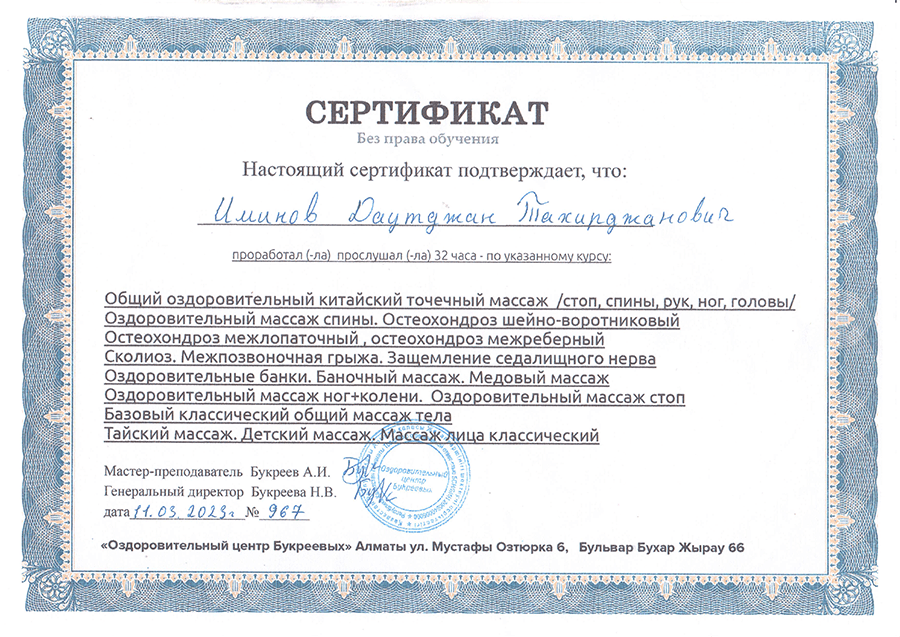 СЕРТИФИКАТ
Без права обучения
Настоящий сертификат подтверждает, что:
Иминов Даутджан Тахирджанович
проработал (-ла) прослушал (-ла) 32 часа - по указанному курсу:
Общий оздоровительный китайский точечный массаж /стоп, спины, рук, ног, головы/
Оздоровительный массаж спины. Остеохондроз шейно-воротниковый
Остеохондроз межлопаточный , остеохондроз межреберный
Сколиоз. Межпозвоночная грыжа. Защемление седалищного нерва
Оздоровительные банки. Баночный массаж. Медовый массаж
Оздоровительный массаж ног+колени. Оздоровительный массаж стоп
Базовый классический общий массаж тела
Тайский массаж. Детский массаж. Массаж лица классический
Мастер-преподаватель Букреев А.И.
Генеральный директор Букреева Н.В.
дата 11.03.2023г. № 967
Оздоровительный
центр
Букреевых
«Оздоровительный центр Букреевых» Алматы ул. Мустафы Озтюрка 6, Бульвар Бухар Жырау 66